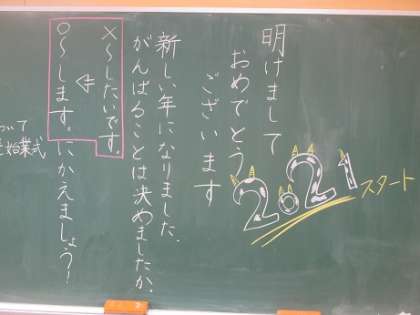 明けまして
おめでとう
ございます
2021
スタート
新しい年になりました。
がんばることは決めましたか。
×～したいです。
⇩
○～します。にかえましょう！
ついて
始業式